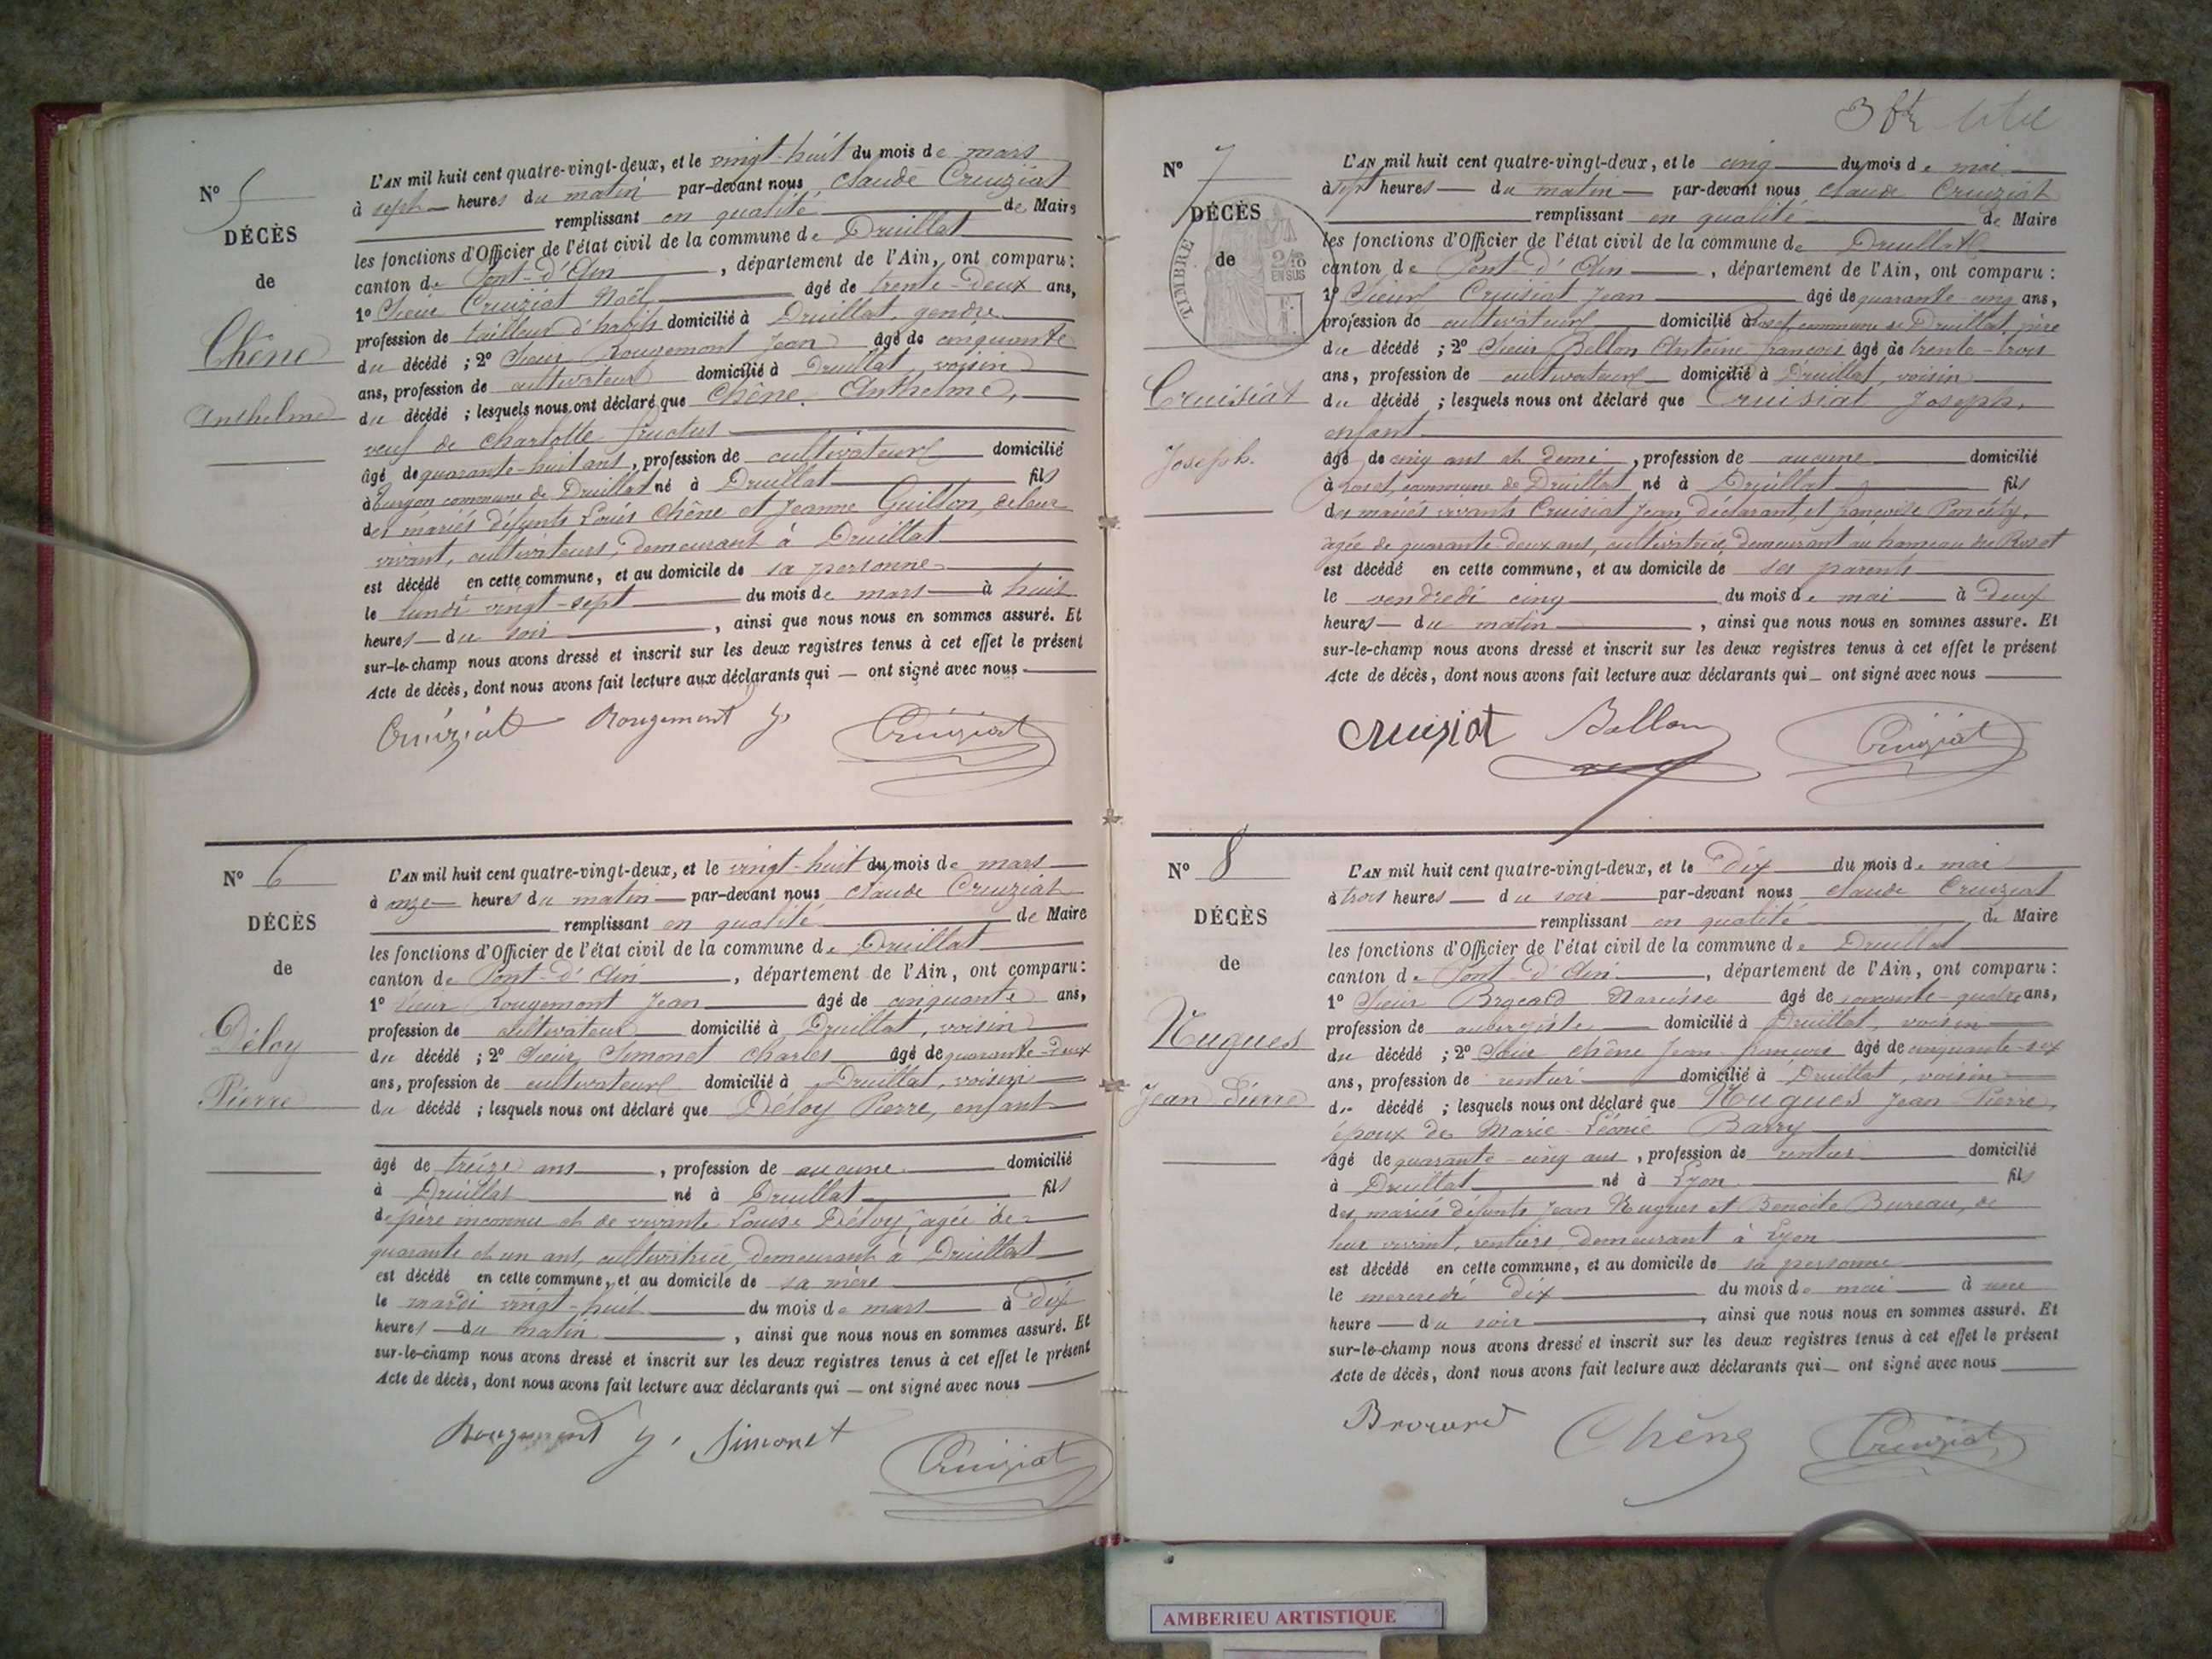 N° 5
DÉCÈS
de
Chêne
Anthelme
L'AN mil huit cent quatre-vingt-deux, et le vingt-huit du mois de mars
à sept heures du matin par-devant nous Claude Cruiziat
remplissant en qualité de Maire
les fonctions d'Officier de l'état civil de la commune de Druillat
canton de Pont-d'Ain, département de l'Ain, ont comparu:
1° Sieur Cruiziat Noël âgé de trente-deux ans,
profession de tailleur d'habits domicilié à Druillat, gendre
du décédé ; 2° Sieur Rougemont Jean âgé de cinquante
ans, profession de cultivateur domicilié à Druillat, voisin
du décédé ; lesquels nous ont déclaré que Chêne Anthelme,
veuf de Charlotte Fructus
âgé de quarante-huit ans, profession de cultivateur domicilié
à Turgon commune de Druillat né à Druillat fils
des mariés défunts Louis Chêne et Jeanne Guillon, de leur
vivant, cultivateurs, demeurant à Druillat
est décédé en cette commune, et au domicile de sa personne
le lundi vingt-sept du mois de mars à huit
heures du soir, ainsi que nous nous en sommes assuré. Et
sur-le-champ nous avons dressé et inscrit sur les deux registres tenus à cet effet le présent
Acte de décès, dont nous avons fait lecture aux déclarants qui — ont signé avec nous
Cruiziat Rougemont J. Cruiziat
N° 6
DÉCÈS
de
Déloy
Pierre
L'AN mil huit cent quatre-vingt-deux, et le vingt-huit du mois de mars
à onze heures du matin par-devant nous Claude Cruiziat
remplissant en qualité de Maire
les fonctions d'Officier de l'état civil de la commune de Druillat
canton de Pont-d'Ain, département de l'Ain, ont comparu:
1° Sieur Rougemont Jean âgé de cinquante ans,
profession de cultivateur domicilié à Druillat, voisin
du décédé ; 2° Sieur Simonet Charles âgé de quarante-deux
ans, profession de cultivateur domicilié à Druillat, voisin
du décédé ; lesquels nous ont déclaré que Déloy Pierre, enfant
âgé de treize ans, profession de aucune domicilié
à Druillat né à Druillat fils
de père inconnu et de vivante Louise Déloy, âgée de
quarante et un ans, cultivatrice, demeurant à Druillat
est décédé en cette commune, et au domicile de sa mère
le mardi vingt-huit du mois de mars à dix
heures du matin, ainsi que nous nous en sommes assuré. Et
sur-le-champ nous avons dressé et inscrit sur les deux registres tenus à cet effet le présent
Acte de décès, dont nous avons fait lecture aux déclarants qui — ont signé avec nous
Rougemont J. Simonet Cruiziat
N° 7
DÉCÈS
de
TIMBRE
2/10
EN SUS
Cruisiat
Joseph.
L'AN mil huit cent quatre-vingt-deux, et le cinq du mois de mai
à sept heures du matin par-devant nous Claude Cruiziat
remplissant en qualité de Maire
les fonctions d'Officier de l'état civil de la commune de Druillat
canton de Pont-d'Ain, département de l'Ain, ont comparu :
1° Sieur Cruisiat Jean âgé de quarante-cinq ans,
profession de cultivateur domicilié à commune de Druillat, père
du décédé ; 2° Sieur Bellon Antoine François âgé de trente-trois
ans, profession de cultivateur domicilié à Druillat, voisin
du décédé ; lesquels nous ont déclaré que Cruisiat Joseph,
enfant
âgé de cinq ans et demi, profession de aucune domicilié
à commune de Druillat né à Druillat fils
des mariés vivants Cruisiat Jean, déclarant, et Françoise
âgée de quarante-deux ans, cultivatrice, demeurant au hameau
est décédé en cette commune, et au domicile de ses parents
le vendredi cinq du mois de mai à deux
heures du matin, ainsi que nous nous en sommes assuré. Et
sur-le-champ nous avons dressé et inscrit sur les deux registres tenus à cet effet le présent
Acte de décès, dont nous avons fait lecture aux déclarants qui — ont signé avec nous
Cruiziat Bellon Cruiziat
N° 8
DÉCÈS
de
Nugues
Jean Pierre
L'AN mil huit cent quatre-vingt-deux, et le dix du mois de mai
à trois heures du soir par-devant nous Claude Cruiziat
remplissant en qualité de Maire
les fonctions d'Officier de l'état civil de la commune de Druillat
canton de Pont-d'Ain, département de l'Ain, ont comparu :
1° Sieur Narcisse âgé de ans,
profession de aubergiste domicilié à Druillat, voisin
du décédé ; 2° Sieur Chêne Jean François âgé de cinquante-six
ans, profession de rentier domicilié à Druillat, voisin
du décédé ; lesquels nous ont déclaré que Nugues Jean Pierre,
époux de Marie Léonie Barry
âgé de quarante-cinq ans, profession de rentier domicilié
à Druillat né à Lyon fils
des mariés défunts Jean Nugues et Benoite Bureau, de
leur vivant, rentiers demeurant à Lyon
est décédé en cette commune, et au domicile de sa personne
le mercredi dix du mois de mai à une
heure du soir, ainsi que nous nous en sommes assuré. Et
sur-le-champ nous avons dressé et inscrit sur les deux registres tenus à cet effet le présent
Acte de décès, dont nous avons fait lecture aux déclarants qui — ont signé avec nous
Chêne Cruiziat
AMBERIEU ARTISTIQUE